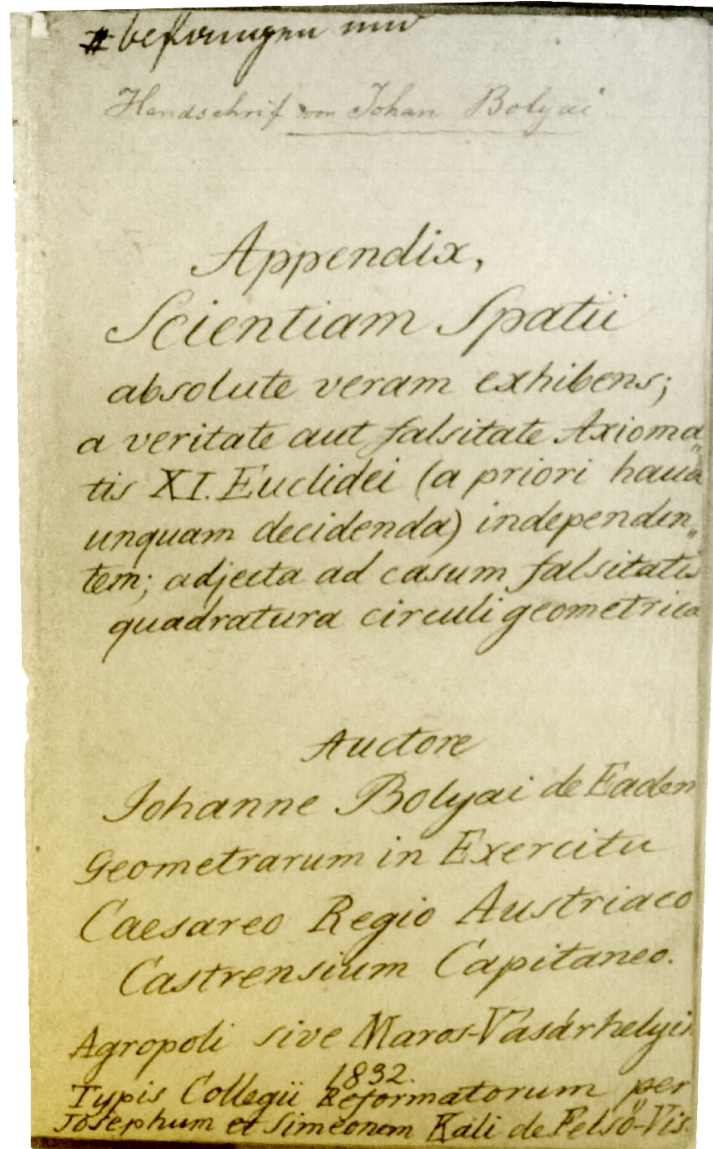 Handschrif von Johan Bolyai
Appendix,
Scientiam Spatii
absolute veram exhibens;
a veritate aut falsitate Axioma„
tis XI. Euclidei (a priori haud
unquam decidenda) independen„
tem; adjecta ad casum falsitatis
quadratura circuli geometrica
Auctore
Johanne Bolyai de Eadem
Geometrarum in Exercitu
Caesareo Regio Austriaco
Castrensium Capitaneo.
Agropoli sive Maros-Vásárhelyii
1832.
Typis Collegii Reformatorum per
Josephum et Simeonem Káli de Felső-Vis